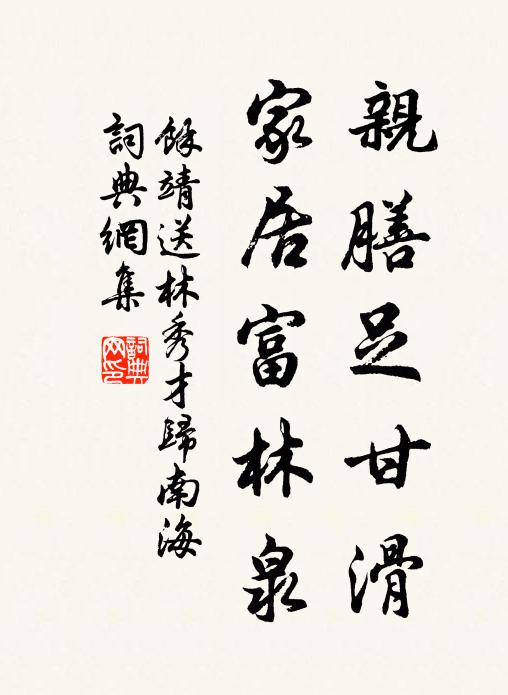 親膳足甘滑
家居富林泉
餘靖送林秀才歸南海
詞典網集
詞典
网印